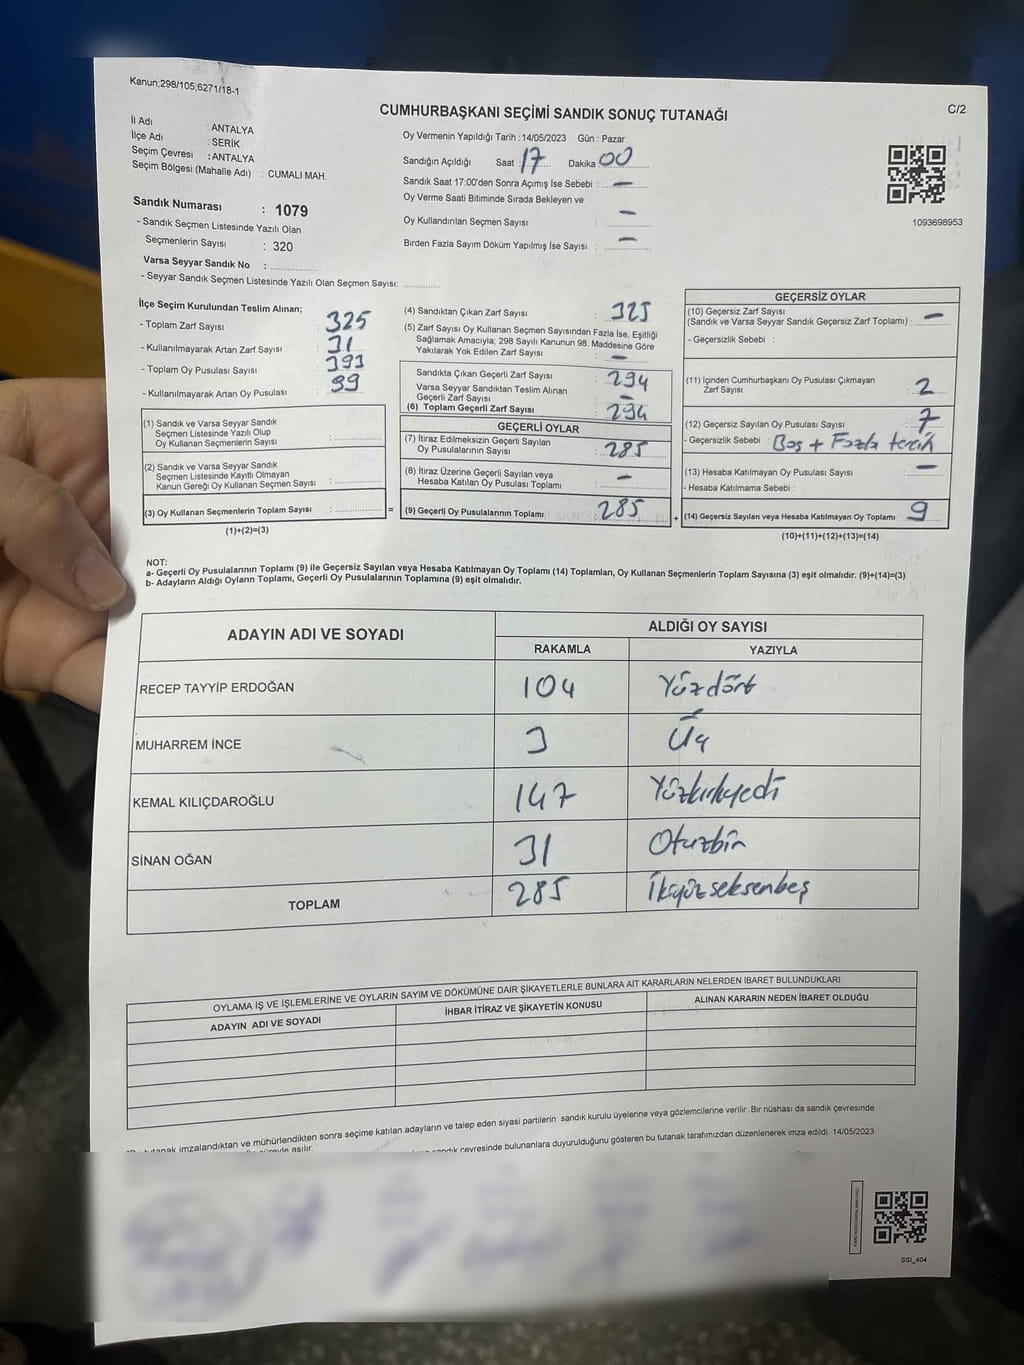 Kanun;298/105;6271/18-1
CUMHURBAŞKANI SEÇİMİ SANDIK SONUÇ TUTANAĞI
C/2
İl Adı : ANTALYA
İlçe Adı : SERİK
Seçim Çevresi : ANTALYA
Seçim Bölgesi (Mahalle Adı) : CUMALI MAH.
Sandık Numarası : 1079
- Sandık Seçmen Listesinde Yazılı Olan
Seçmenlerin Sayısı : 320
Varsa Seyyar Sandık No :
- Seyyar Sandık Seçmen Listesinde Yazılı Olan Seçmen Sayısı:
Oy Vermenin Yapıldığı Tarih : 14/05/2023 Gün : Pazar
Sandığın Açıldığı Saat : 17 Dakika 00
Sandık Saat 17:00'den Sonra Açımış İse Sebebi : —
Oy Verme Saati Bitiminde Sırada Bekleyen ve
Oy Kullandırılan Seçmen Sayısı : —
Birden Fazla Sayım Döküm Yapılmış İse Sayısı : —
1093698953
İlçe Seçim Kurulundan Teslim Alınan;
- Toplam Zarf Sayısı : 325
- Kullanılmayarak Artan Zarf Sayısı : 31
- Toplam Oy Pusulası Sayısı : 393
- Kullanılmayarak Artan Oy Pusulası : 99
(1) Sandık ve Varsa Seyyar Sandık
Seçmen Listesinde Yazılı Olup
Oy Kullanan Seçmenlerin Sayısı :
(2) Sandık ve Varsa Seyyar Sandık
Seçmen Listesinde Kayıtlı Olmayan
Kanun Gereği Oy Kullanan Seçmen Sayısı :
(3) Oy Kullanan Seçmenlerin Toplam Sayısı : =
(1)+(2)=(3)
(4) Sandıktan Çıkan Zarf Sayısı : 325
(5) Zarf Sayısı Oy Kullanan Seçmen Sayısından Fazla İse, Eşitliği
Sağlamak Amacıyla; 298 Sayılı Kanunun 98. Maddesine Göre
Yakılarak Yok Edilen Zarf Sayısı : —
Sandıkta Çıkan Geçerli Zarf Sayısı : 294
Varsa Seyyar Sandıktan Teslim Alınan
Geçerli Zarf Sayısı : —
(6) Toplam Geçerli Zarf Sayısı : 294
GEÇERLİ OYLAR
(7) İtiraz Edilmeksizin Geçerli Sayılan
Oy Pusulalarının Sayısı : 285
(8) İtiraz Üzerine Geçerli Sayılan veya
Hesaba Katılan Oy Pusulası Toplamı : —
(9) Geçerli Oy Pusulalarının Toplamı 285 +
GEÇERSİZ OYLAR
(10) Geçersiz Zarf Sayısı
(Sandık ve Varsa Seyyar Sandık Geçersiz Zarf Toplamı) : —
- Geçersizlik Sebebi :
(11) İçinden Cumhurbaşkanı Oy Pusulası Çıkmayan
Zarf Sayısı : 2
(12) Geçersiz Sayılan Oy Pusulası Sayısı : 7
- Geçersizlik Sebebi : Boş + Fazla tercih
(13) Hesaba Katılmayan Oy Pusulası Sayısı : —
- Hesaba Katılmama Sebebi :
(14) Geçersiz Sayılan veya Hesaba Katılmayan Oy Toplamı : 9
(10)+(11)+(12)+(13)=(14)
NOT:
a- Geçerli Oy Pusulalarının Toplamı (9) ile Geçersiz Sayılan veya Hesaba Katılmayan Oy Toplamı (14) Toplamları, Oy Kullanan Seçmenlerin Toplam Sayısına (3) eşit olmalıdır. (9)+(14)=(3)
b- Adayların Aldığı Oyların Toplamı, Geçerli Oy Pusulalarının Toplamına (9) eşit olmalıdır.
ADAYIN ADI VE SOYADI ALDIĞI OY SAYISI
RAKAMLA YAZIYLA
RECEP TAYYİP ERDOĞAN 104 Yüzdört
MUHARREM İNCE 3 Üç
KEMAL KILIÇDAROĞLU 147 Yüzkırkyedi
SİNAN OĞAN 31 Otuzbir
TOPLAM 285 İkiyüzseksenbeş
OYLAMA İŞ VE İŞLEMLERİNE VE OYLARIN SAYIM VE DÖKÜMÜNE DAİR ŞİKAYETLERLE BUNLARA AİT KARARLARIN NELERDEN İBARET BULUNDUKLARI
ADAYIN ADI VE SOYADI İHBAR İTİRAZ VE ŞİKAYETİN KONUSU ALINAN KARARIN NEDEN İBARET OLDUĞU
tutanak imzalandıktan ve mühürlendikten sonra seçime katılan adayların ve talep eden siyasi partilerin sandık kurulu üyelerine veya gözlemcilerine verilir. Bir nüshası da sandık çevresinde
asılır. sandık çevresinde bulunanlara duyurulduğunu gösteren bu tutanak tarafımızdan düzenlenerek imza edildi. 14/05/2023
SSI_404